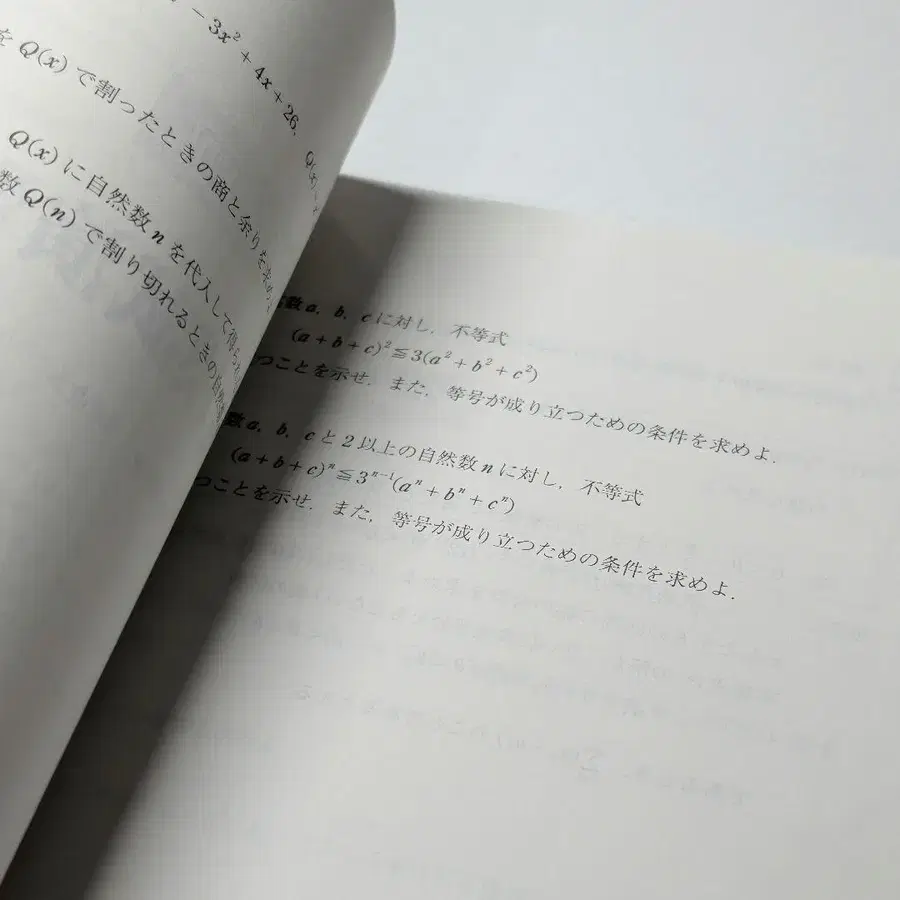 − 3x² + 4x + 26,
Q(x) で割ったときの商と余りを求め
Q(x) に自然数 n を代入して得ら
数 Q(n) で割り切れるときの自然
数 a, b, c に対し, 不等式
(a + b + c)² ≦ 3(a² + b² + c²)
つことを示せ. また, 等号が成り立つための条件を求めよ.
数 a, b, c と 2 以上の自然数 n に対し, 不等式
(a + b + c)ⁿ ≦ 3ⁿ⁻¹(aⁿ + bⁿ + cⁿ)
つことを示せ. また, 等号が成り立つための条件を求めよ.